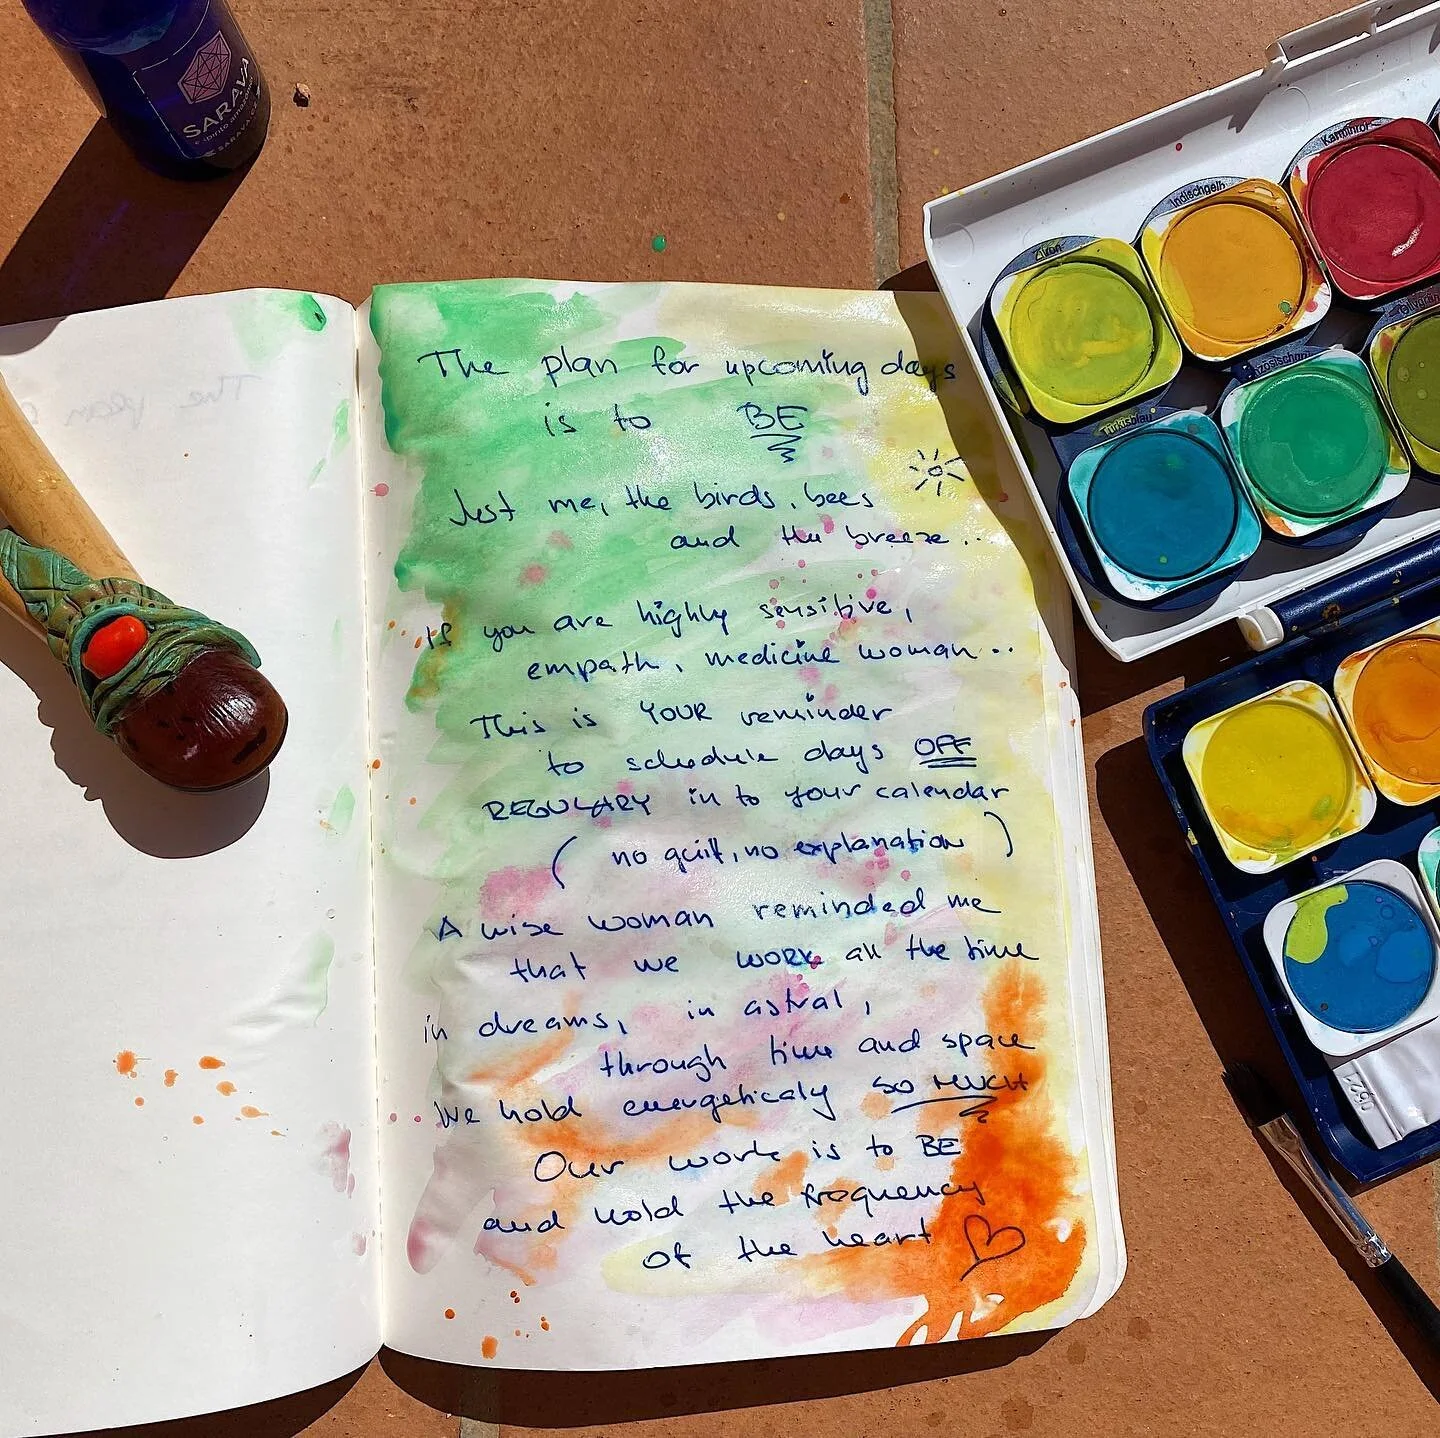 SARAVA
SARAVA.CZ
Karminrot
Indischgelb
Zitron
Türkisblau
The plan for upcoming days
is to BE
Just me, the birds, bees
and the breeze..
If you are highly sensitive,
empath, medicine woman..
This is YOUR reminder
to schedule days OFF
REGULARY in to your calendar
( no guilt, no explanation )
A wise woman reminded me
that we WORK all the time
in dreams, in astral,
through time and space
We hold energeticaly SO MUCH
Our work is to BE
and hold the frequency
of the heart